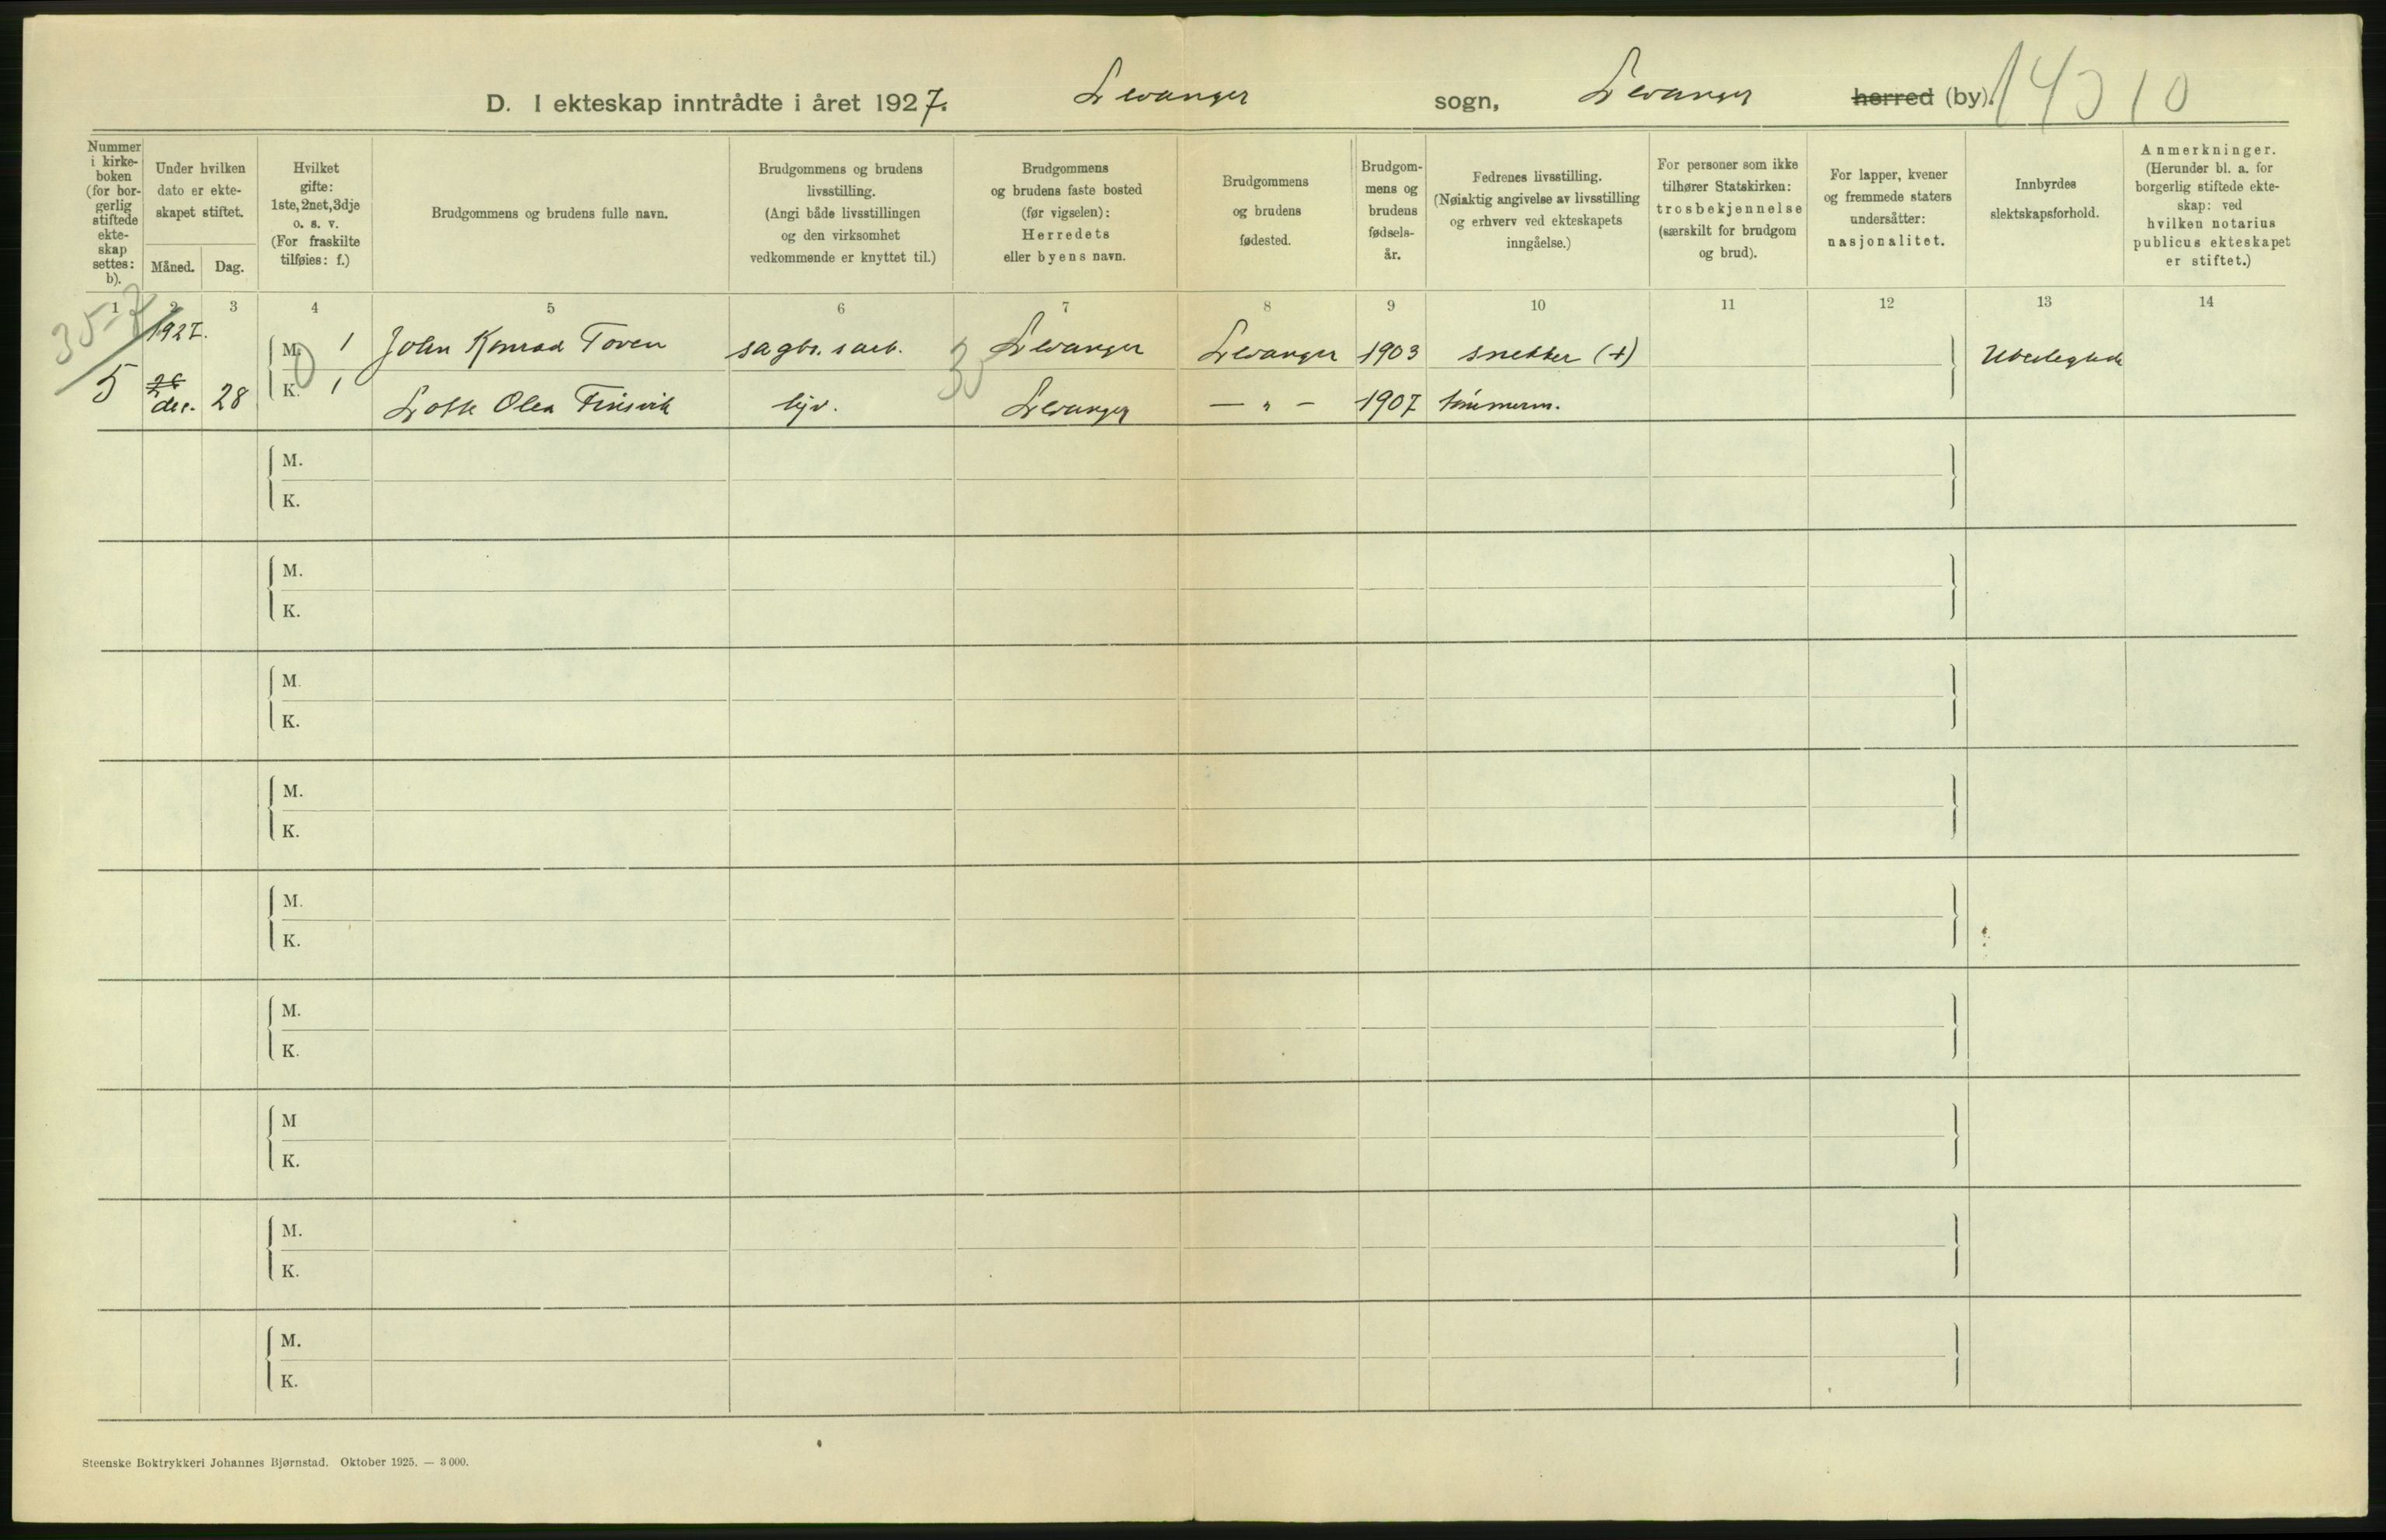 D. I ekteskap inntrådte i året 1927. Levanger sogn, Levanger herred (by).
Nummer i kirke-boken (for bor-gerlig stiftede ekte-skap settes: b).
Under hvilken dato er ekte-skapet stiftet.
Måned. Dag.
Hvilket gifte: 1ste, 2net, 3dje o. s. v. (For fraskilte tilføies: f.)
Brudgommens og brudens fulle navn.
Brudgommens og brudens livsstilling. (Angi både livsstillingen og den virksomhet vedkommende er knyttet til.)
Brudgommens og brudens faste bosted (før vigselen): Herredets eller byens navn.
Brudgommens og brudens fødested.
Brudgom-mens og brudens fødsels-år.
Fedrenes livsstilling. (Nøiaktig angivelse av livsstilling og erhverv ved ekteskapets inngåelse.)
For personer som ikke tilhører Statskirken: trosbekjennelse (særskilt for brudgom og brud).
For lapper, kvener og fremmede staters undersåtter: nasjonalitet.
Innbyrdes slektskapsforhold.
Anmerkninger. (Herunder bl. a. for borgerlig stiftede ekte-skap: ved hvilken notarius publicus ekteskapet er stiftet.)
1 2 3 4 5 6 7 8 9 10 11 12 13 14
1927.
M. 1 John Konrad Toven sagbr.sarb. Levanger Levanger 1903 snekker (+) Ubeslegtede
5 des. 28 K. 1 Lotte Olea Finsvik hjv. Levanger — „ — 1907 tømmerm.
M.
K.
M.
K.
M.
K.
M.
K.
M.
K.
M.
K.
M
K.
M.
K.
M.
K.
Steenske Boktrykkeri Johannes Bjørnstad. Oktober 1925. — 3 000.